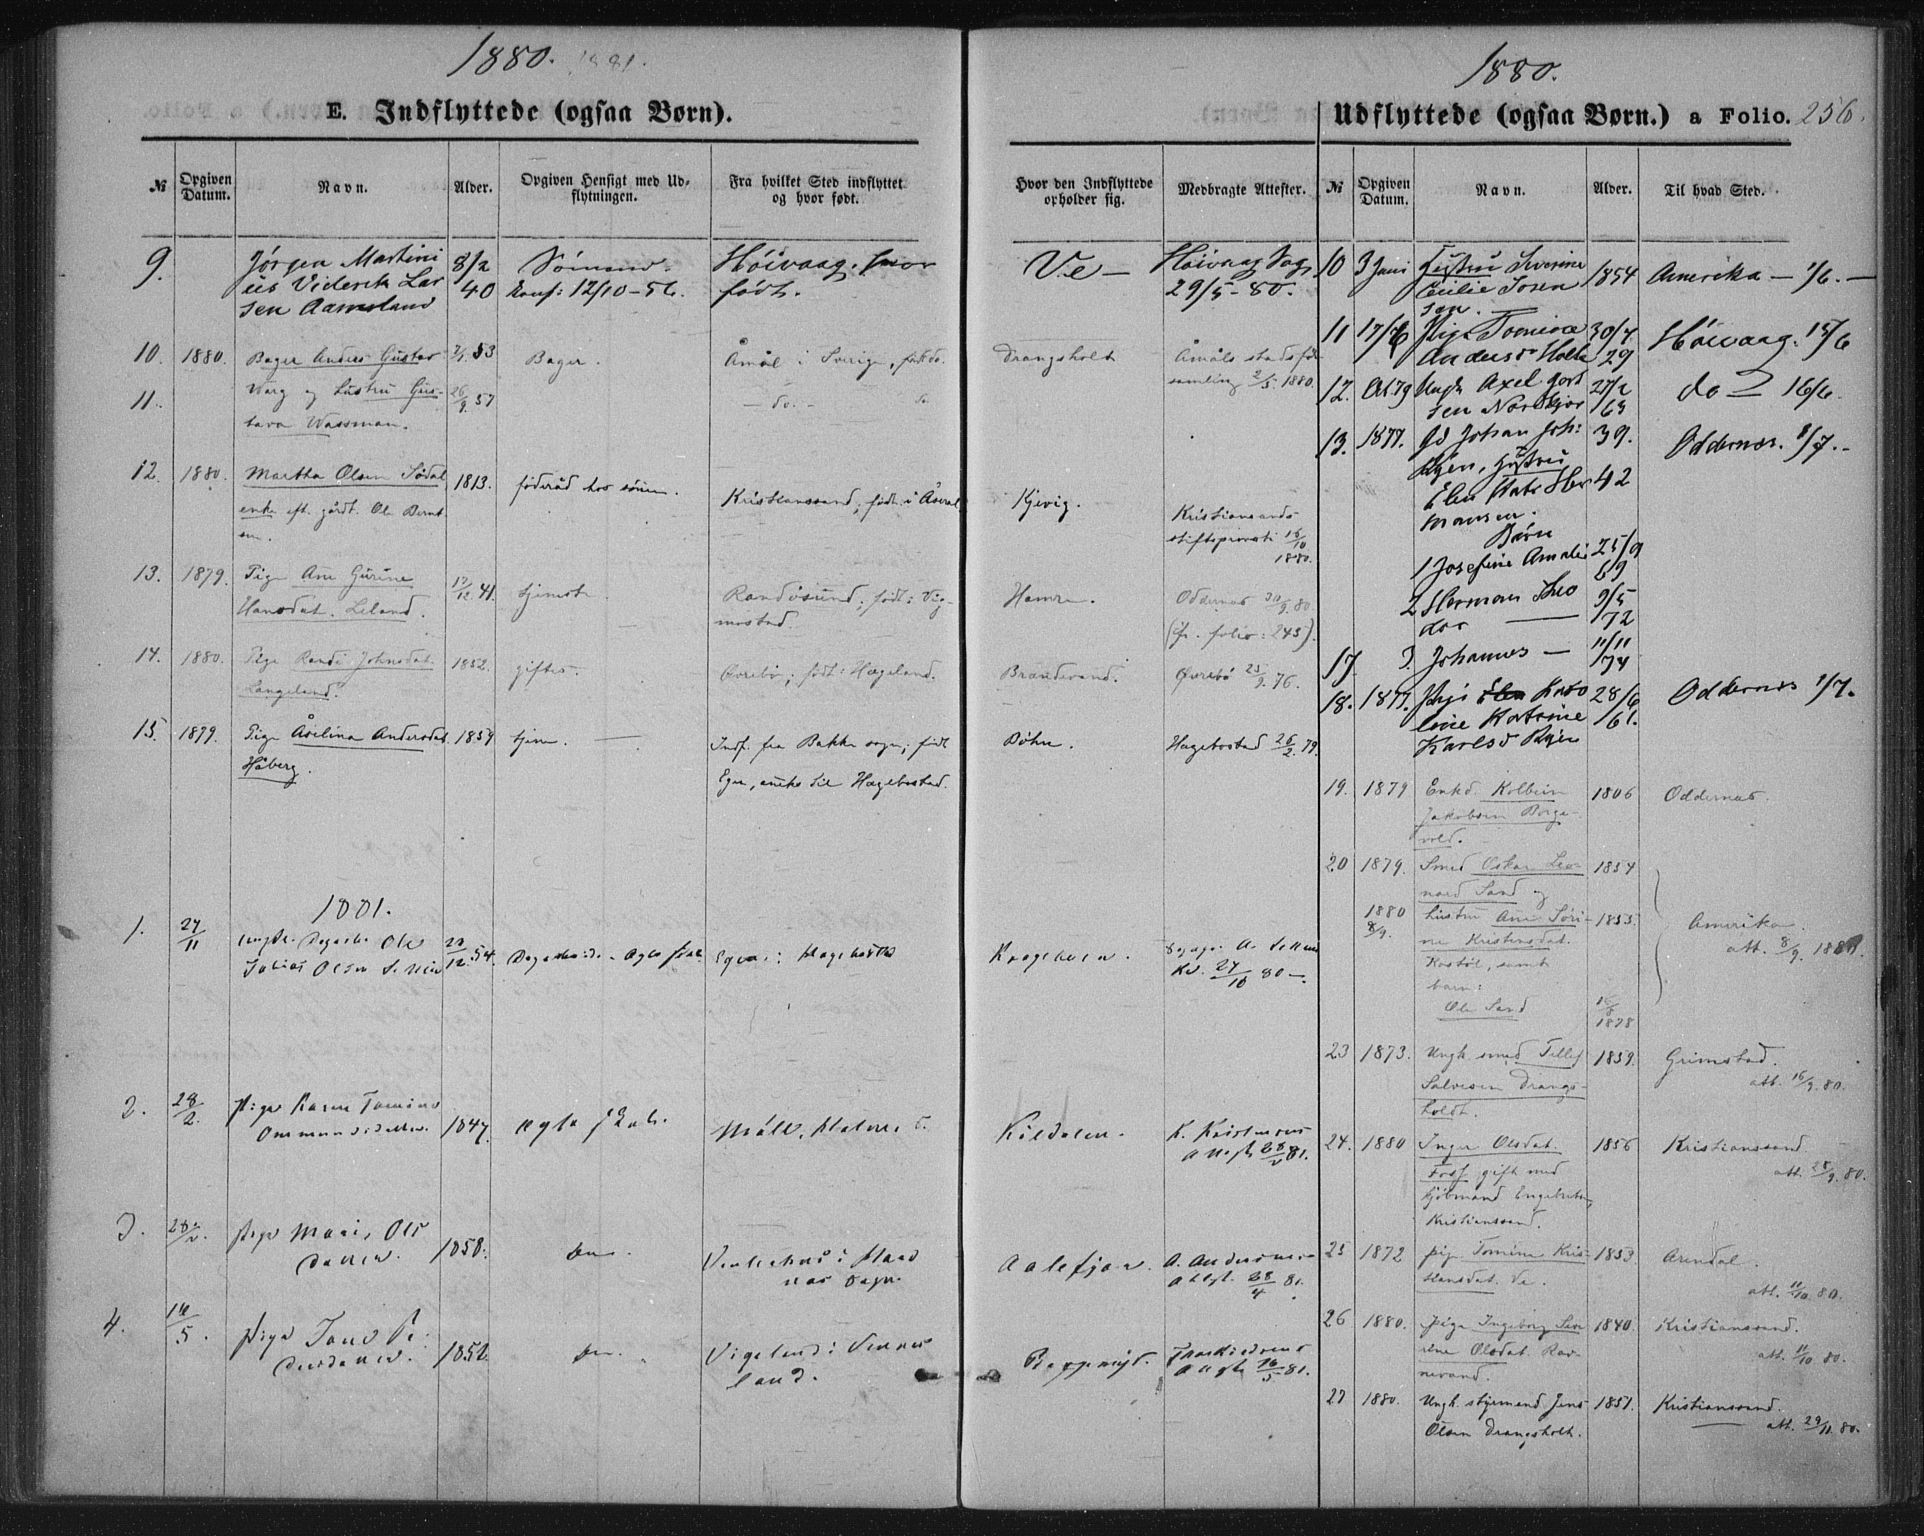 1880. 1881.
E. Indflyttede (ogsaa Børn).
№
Opgiven Datum.
Navn.
Alder.
Opgiven Hensigt med Udflytningen.
Fra hvilket Sted indflyttet og hvor født.
Hvor den Indflyttede opholder sig.
Medbragte Attester.
9.
Jørgen Martini
us Viderik Lar
sen Aamsland
8/2
40
Sömand.
Konf: 12/10-56.
Höivaag, hvor
födt.
Ve —
Höivaag Sog
29/5-80.
10. 1880.
Bager Anders Gustav
Warg og hustru Gus-
tava Wassman.
53
11.
26/9 57
Bager.
Åmål i Sverige, født do.
— do. —
Drangsholt
Åmåls stadsför
samling 2/5 1880.
12. 1880.
Martha Olsen Södal
enke eft. gårdt. Ole Bernt
sen.
1813.
föderåd hos sönnen.
Kristianssand, födt i Åseral
Kjevig.
Kristianssands
stiftsprovsti 16/10
1880.
13. 1879.
Pige Ane Gurine
Hansdat. Leland.
17/12 41.
tjeneste
Randösund; födt: Vig-
mostad.
Hamre.
Oddernes 30/9. 80.
(fr. folio: 245).
14. 1880.
Pige Randi Johnsdat.
Langeland.
1852.
giftes.
Øvrebö; födt: Hægeland.
Brandevand.
Øvrebö 25/9. 76.
15. 1879.
Pige Åselina Andersdat.
Håberg.
1859
tjene.
Indf. fra Bakke sogn; födt
Egen, aneks til Hægebostad.
Böhn.
Hægebostad 26/2. 79.
1881.
1.
27/11
ungk. Dagarb. Ole
Tobias Olsen
23/12 54.
Krageboen.
Kv. 27/10 80 —.
2.
28/2.
Pige Karen Tomine
1847.
søgte Plads.
Kildalen.
K. Kristensens
Attest 28/2 81.
3.
28/2.
Pige Marie Ols
datter.
1858.
do.
Aalefjær.
A. Andersens
Attst. 28/4 81.
4.
16/5.
Pige Tone Pe
dersdatter.
do.
Vigeland i Vennes
land.
Attest 16/5 81.
1880.
Udflyttede (ogsaa Børn.) a Folio. 256.
№
Opgiven Datum.
Navn.
Alder.
Til hvad Sted.
10 3 Juni
Hustru Severine
Cecilie Josen
sen.
1854
Amerika — 1/6. —
11 17/6
Pige Tomine
Andersd Holte
30/7
29
Höivaag. 15/6
12. Okt 79
Ungk Axel Gort
sen Nordkjær
27/2
/63
do — 16/6.
13. 1877.
Gd Johan Joh:
Ryen, Hustru
Elen Mate Her
mansen.
39.
42
Oddernes. 1/7. -
Börn
1 Josefine Amalie 25/9
69
2 Herman Theo
dor —
9/5
/72
17 3. Johannes —
11/11
/74
18. 1877.
Pige Elen Karo
line Katrine
Karlsd Ryen
28/6
/61.
Oddernes 1/7.
19. 1879
Enkd. Kolbein
Jakobsen Borge-
vold.
1806
Oddernes.
20 1879.
Smed Oskar Leo-
nard Sand og
1854
1880
8/9.
hustru Ane Söri-
ne Kristensdat.
Kostöl, samt
barn:
Ole Sand
1855.
16/8
1878
Amerika.
att. 8/9. 1880.
23 1873.
Ungk. smed Tellef
Salvesen Drangs-
holdt.
1859.
Grimstad.
att. 16/9. 80.
24. 1880
Inger Olsdat.
Foss gift med
kjöbmand Engebretsen,
Kristianssand.
1856
Kristianssand.
att. 28/9. 80.
25 1872
Pige Tomine Kris-
tiansdat. Ve.
1853
Arendal.
att. 11/10. 80.
26 1880.
Pige Ingeborg Seve
rine Olsdat. Rav-
nevand.
1840.
Kristianssand.
att. 11/10 80.
27 1880.
Ungk. styrmand Jens
Olsen Drangsholt.
1857.
Kristianssand.
att. 29/11. 80.